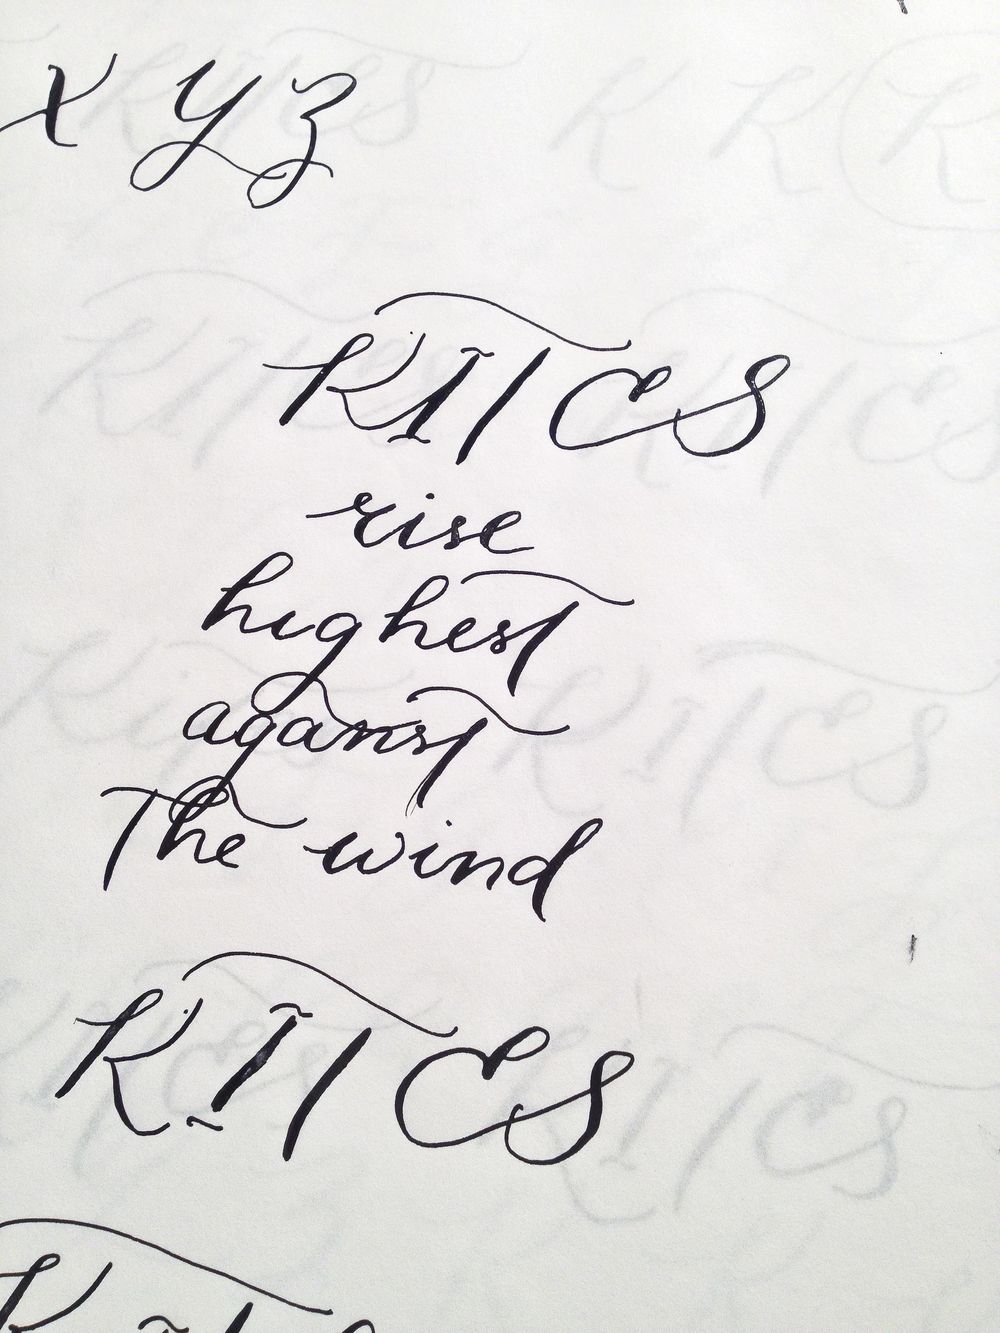 x y z
KITES
rise
highest
against
The wind
KITES